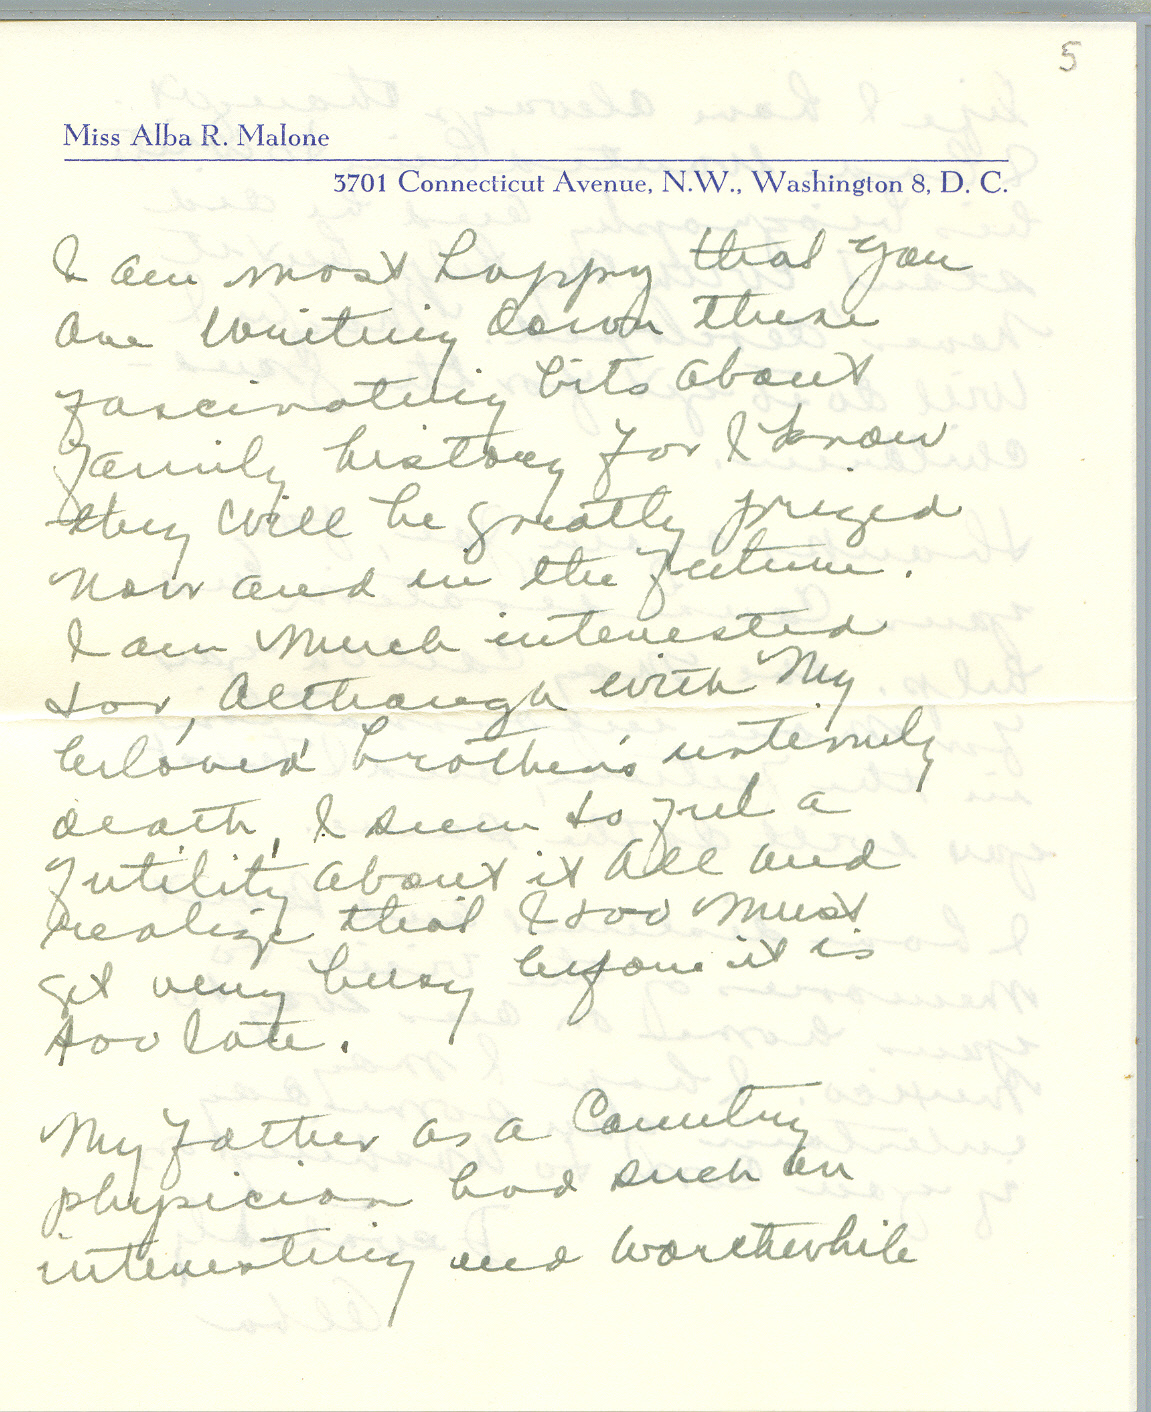 5
Miss Alba R. Malone
3701 Connecticut Avenue, N.W., Washington 8, D. C.
I am most happy that you
are writing down these
fascinating bits about
family history for I know
they will be greatly prized
now and in the future.
I am much interested
too, although with my
beloved brother's untimely
death, I seem to feel a
futility about it all and
realize that I too must
get very busy before it is
too late.
My father as a Country
physician had such an
interesting and worthwhile